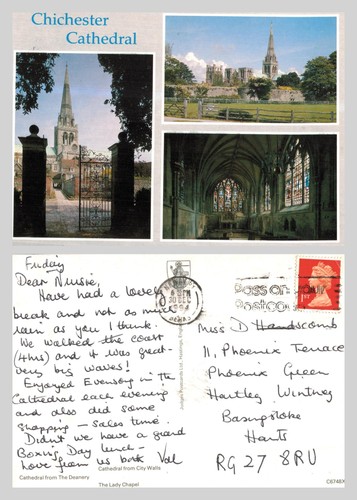 Chichester
Cathedral
Friday
Dear Nursie,
Have had a lovely
break and not as much
rain as you I think.
We walked the coast
(4hrs) and it was great-
very big waves!
Enjoyed Evensong in the
Cathedral each evening
and also did some
shopping - sales time.
Didn't we have a grand
Boxing Day lunch-
Love from us both Val
Cathedral from City Walls
Cathedral from The Deanery
The Lady Chapel
30 DEC
Pass on your
1ST
Miss D Handscomb
11, Phoenix Terrace
Phoenix Green
Hartley Wintney
Basingstoke
Hants
RG27 8RU
C6748X